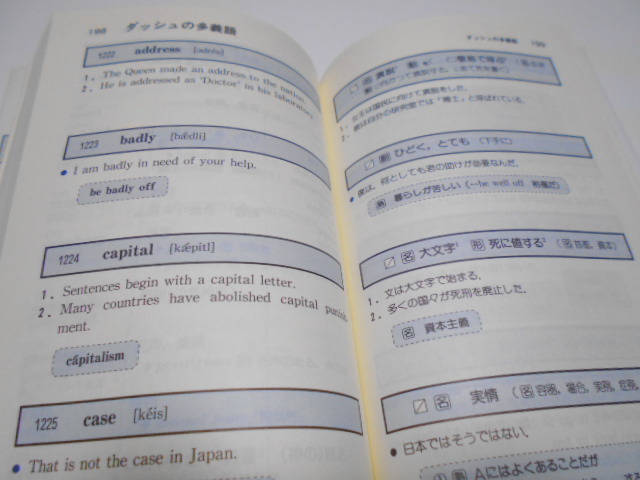 198 ダッシュの多義語
1222 address [ədrés]
1. The Queen made an address to the nation.
2. He is addressed as 'Doctor' in his laboratory.
1223 badly [bǽdli]
● I am badly in need of your help.
be badly off
1224 capital [kǽpitl]
1. Sentences begin with a capital letter.
2. Many countries have abolished capital punish-
ment.
cápitalism
1225 case [kéis]
● That is not the case in Japan.
ダッシュの多義語 199
1. 女王は国民に向けて演説をした.
2. 彼は自分の研究室では「博士」と呼ばれている.
副 ひどく, とても (下手に)
● 僕は, 何としても君の助けが必要なんだ.
熟 暮らしが苦しい (↔be well off 裕福だ)
名 大文字¹ 形 死に値する² (名 首都, 資本)
1. 文は大文字で始まる.
2. 多くの国々が死刑を廃止した.
名 資本主義
名 実情 (名 容器, 場合, 実務, 症
● 日本ではそうではない.
① 熟 Aにはよくあることだが